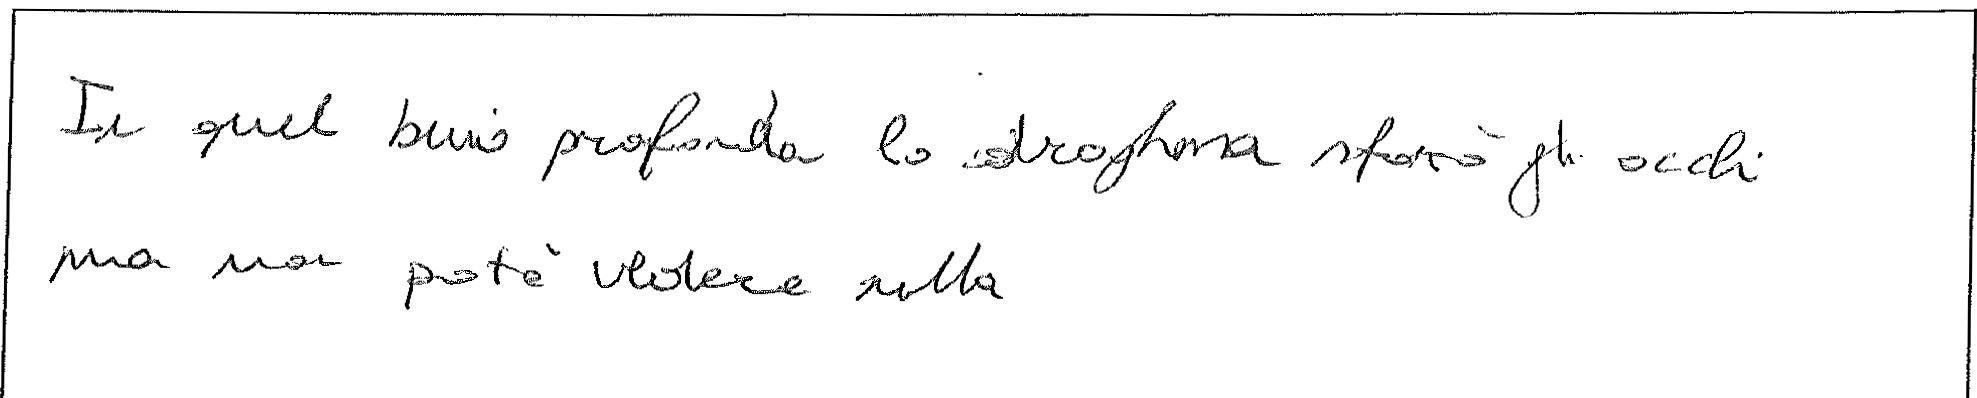 In quel buio profondo lo sforzò gli occhi
ma non potè vedere nulla